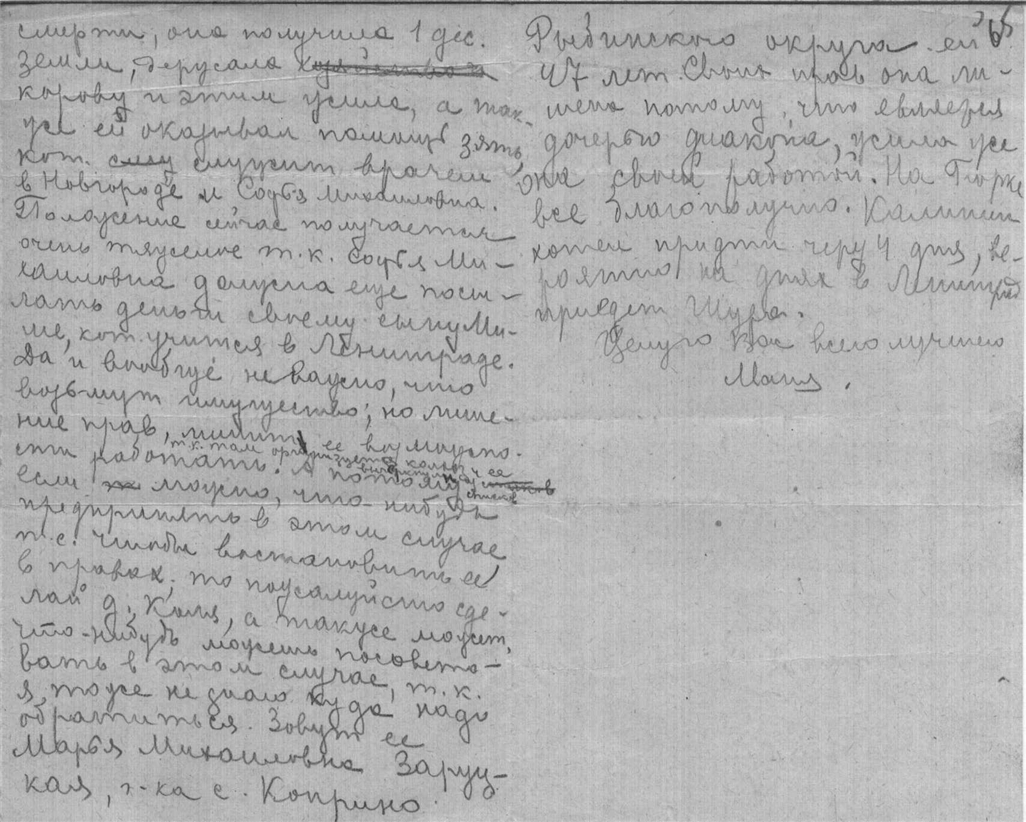 смерти, она получила 1 дес.
земли, держала хозяйство и
корову и этим жила, а так-
же ей оказывал помощь зять,
кот. служит врачем
в Новгороде и Софья Михайловна.
Положение сейчас получается
очень тяжелое т.к. Софья Ми-
хайловна должна еще посы-
лать деньги своему сыну Ми-
ше, кот. учится в Ленинграде.
Да и вообще не важно, что
возьмут имущество; но лише-
ние прав, лишит ее возможно-
т.к. там организуется колхоз и ее
сти работать. А потому
списков
если можно, что-нибудь
предпринять в этом случае,
т.е. чтобы востановить ее
в правах, то пожалуйсто сде-
лай д. Коля, а также может,
что-нибудь можешь посовето-
вать в этом случае, т.к.
я тоже не знаю куда надо
обратиться. Зовут ее
Марья Михайловна Заруц-
кая, г-ка с. Коприно
Рыбинского округа ей
47 лет. Своих прав она ли-
шена потому, что является
дочерью диакона, жила же
она своей работой. На Горке
все благополучно. Калинин
хотел придти чер. 4 дня, ве-
роятно на днях в Ленинград
приедет Шура.
Целую Вас всего лучшего
Маня.